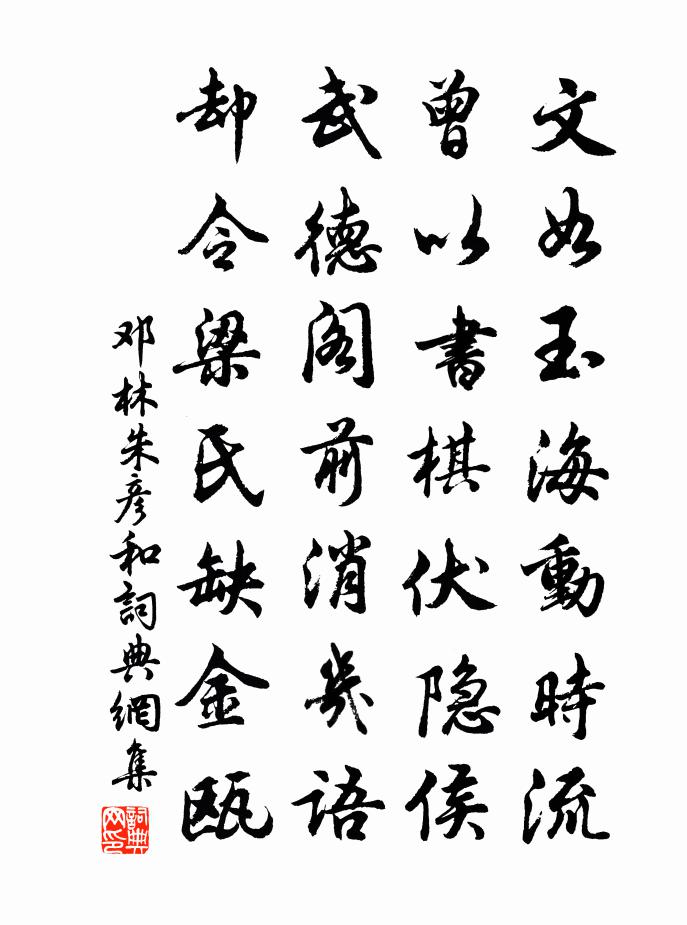 文如玉海動時流
曾以書棋伏隐侯
武德阁前消幾語
却令梁氏缺金瓯
邓林朱彦和詞典網集
詞典网印